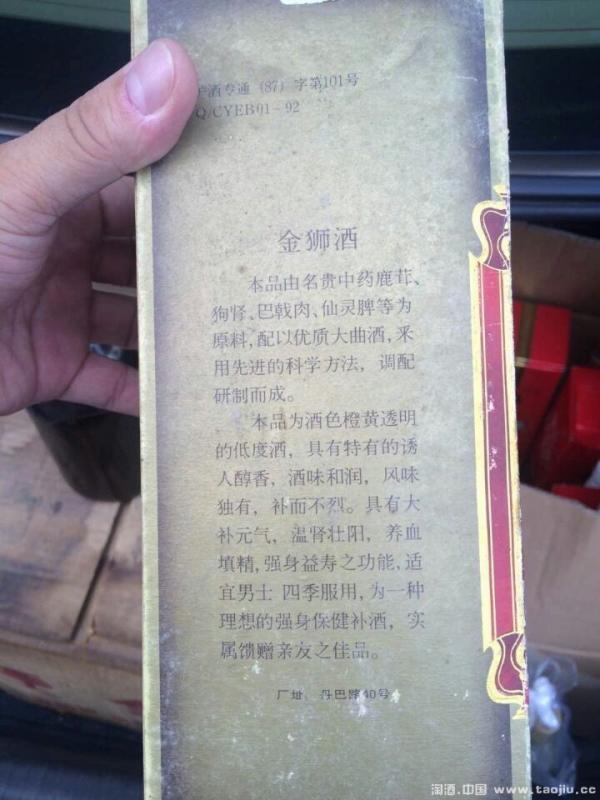 沪酒专通（87）字第101号
Q/CYEB01－92
金狮酒
本品由名贵中药鹿茸、
狗肾、巴戟肉、仙灵脾等为
原料，配以优质大曲酒，采
用先进的科学方法，调配
研制而成。
本品为酒色橙黄透明
的低度酒，具有特有的诱
人醇香，酒味和润，风味
独有，补而不烈。具有大
补元气，温肾壮阳，养血
填精，强身益寿之功能，适
宜男士 四季服用，为一种
理想的强身保健补酒，实
属馈赠亲友之佳品。
厂址 丹巴路40号
淘酒.中国 www.taojiu.cc